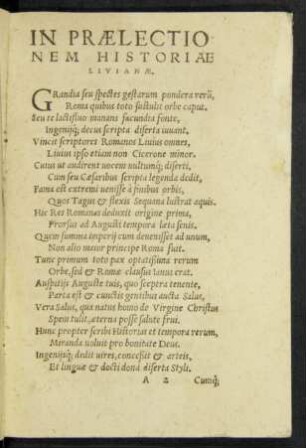 IN PRÆLECTIO
NEM HISTORIAE
LIVIANÆ.
GRandia seu spectes gestarum pondera rerũ,
Roma quibus toto sustulit orbe caput.
Seu te lactifluo manans facundia fonte,
Ingenijq; decus scripta diserta iuuant.
Vincit scriptores Romanos Liuius omnes,
Liuius ipso etiam non Cicerone minor.
Cuius ut audirent uocem uultumq; diserti,
Cum seu Cæsaribus scripta legenda dedit,
Fama est extremi uenisse à finibus orbis,
Quos Tagus & flexis Sequana lustrat aquis.
Hic Res Romanas deducit origine prima,
Prorsus ad Augusti tempora læta senis.
Quem summa imperij cum deuenisset ad unum,
Non alio maior principe Roma fuit.
Tunc primum toto pax optatissima rerum
Orbe, sed & Romæ clausus Ianus erat.
Auspitijs Auguste tuis, quo sceptra tenente,
Parta est & cunctis gentibus aucta Salus,
Vera Salus, quia natus homo de Virgine Christus
Spem tulit, æterna posse salute frui.
Hunc propter scribi Historias et tempora rerum,
Miranda uoluit pro bonitate Deus.
Ingenijq; dedit uires, concessit & arteis,
Et linguæ & docti dona diserta Styli.
A 2 Cumq;